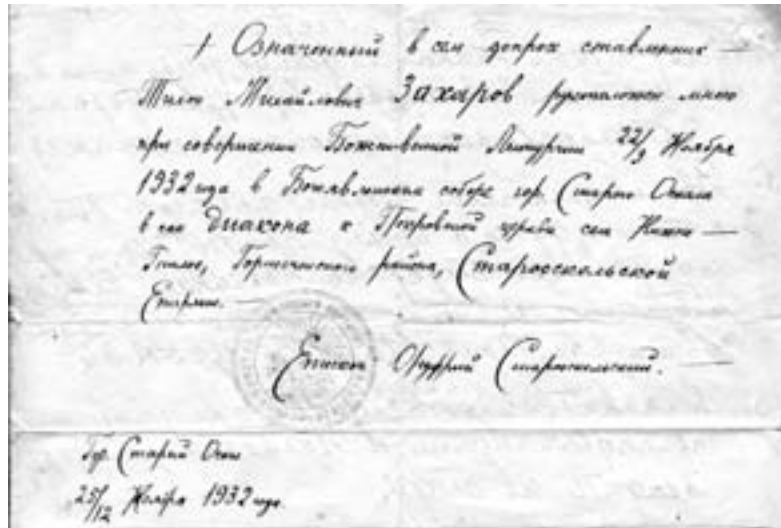 Означенный в сем допросе ставленник —
Тихон Михайлович Захаров рукоположен мною
при совершении Божественной Литургии 22/9 Ноября
1932 года в Богоявленском соборе гор. Старого Оскола
в сан Диакона к Покровской церкви села Нижне —
района, Старооскольской
Епархии. —
Епископ Онуфрий Старооскольский. —
Гор. Старый Оскол
25/12 Ноября 1932 года.